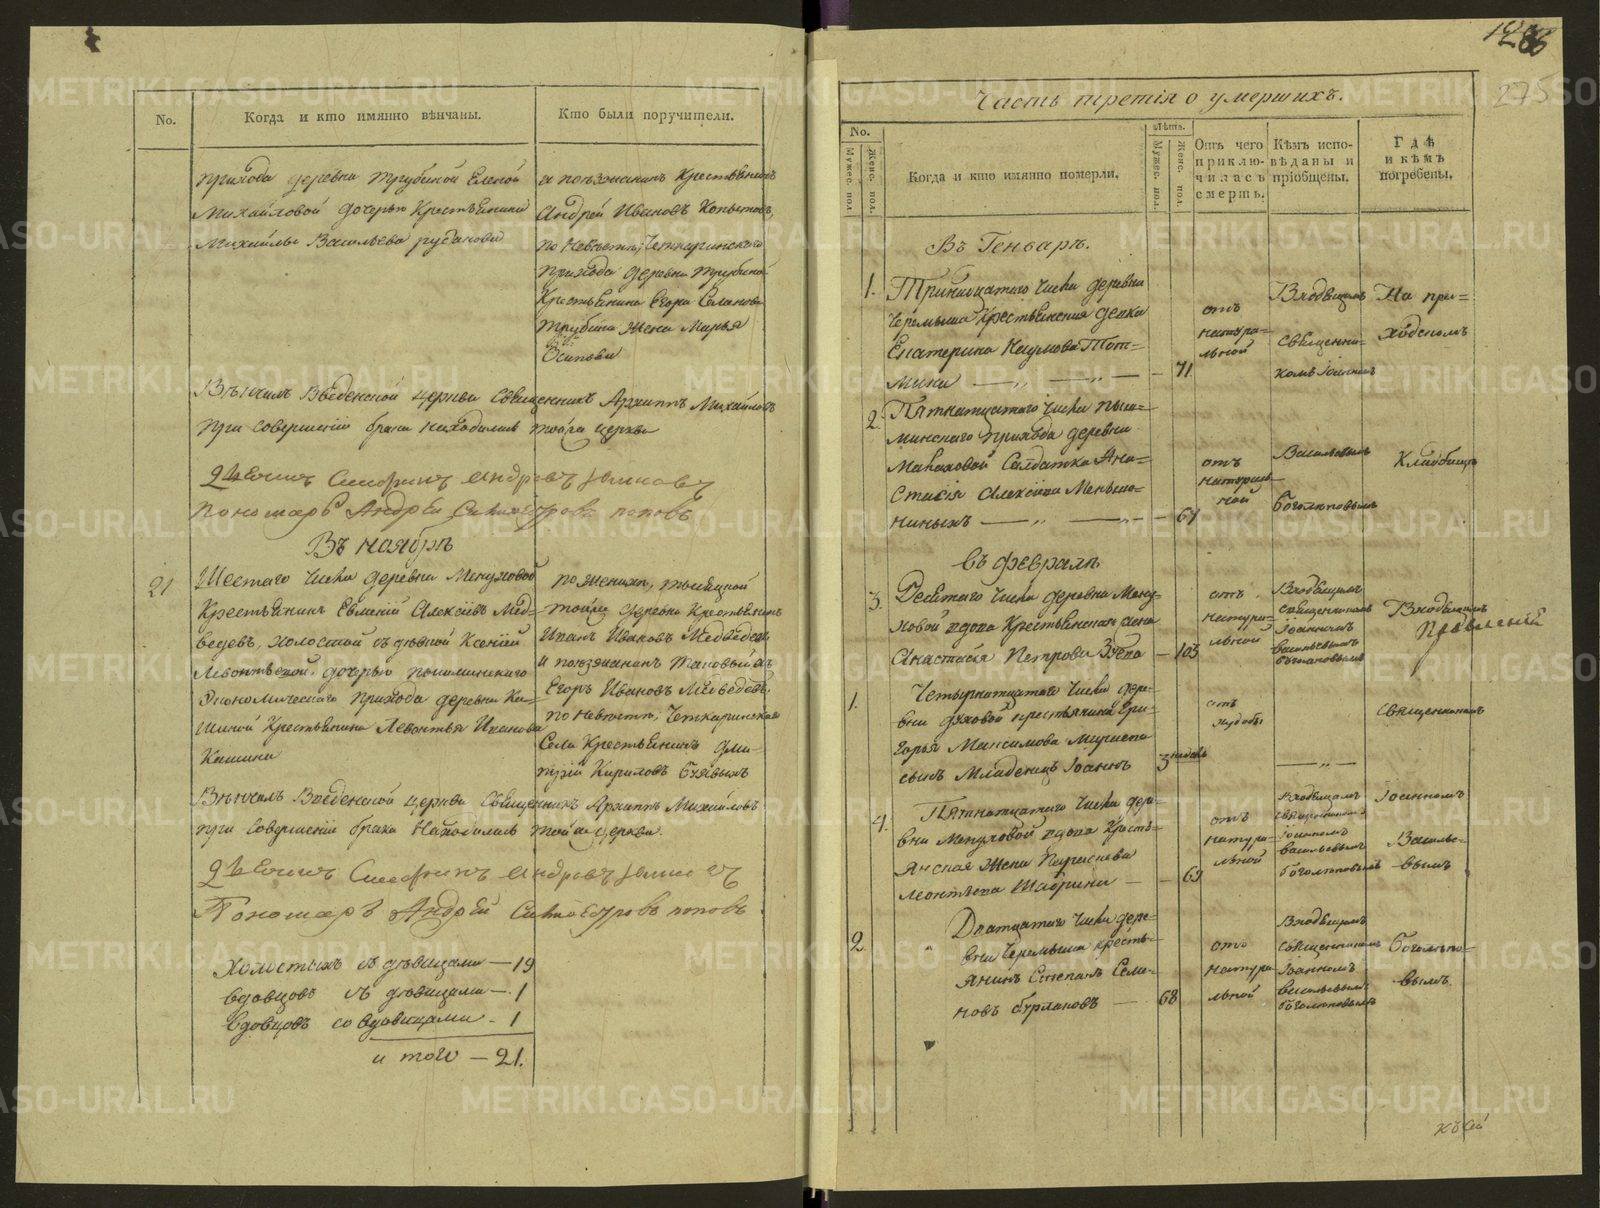 No.
Когда и кто имянно вѣнчаны.
Кто были поручители.
прихода деревни Трубиной Еленой
Михайловой дочерью Крестьянина
Михайлы Васильева Русанова
а поѣзжанинъ Крестьянинъ
Андрей Ивановъ Копытовъ,
по невѣстѣ; Четкаринского
прихода деревни Трубиной
Крестьянина Егора
Трубина жена Марья
Осипова
Вѣнчалъ Введенской церкви Священникъ Архиппъ Михайловъ
при совершеніи брака находились тойже церкви
Андреевъ
Пономарь Андрей Сильвестровъ Поповъ
Въ ноябрѣ
21
Шестаго числа деревни Менуховой
Крестьянинъ Евгеній Алексѣевъ Мед-
ведевъ, холостой съ дѣвкой Ксеніей
Левонтьевой, дочерью пышминского
Экономического прихода деревни Ка-
шиной Крестьянина Левонтья Иванова
Кашина
по женихѣ, тысяцкой
тойже деревни Крестьянинъ
Иванъ Ивановъ Медведевъ,
и поѣзжанинъ таковый жъ
Егоръ Ивановъ Медведевъ.
по невѣстѣ; Четкаринского
Села Крестьянинъ Дми-
трій Кириловъ
Вѣнчалъ Введенской церкви Священникъ Архиппъ Михайловъ
при совершеніи брака находились тойже церкви
Андреевъ
Пономарь Андрей Сильвестровъ Поповъ
Холостыхъ съ дѣвицами — 19
вдовцовъ съ дѣвицами — 1
вдовцовъ со вдовицами — 1
и того — 21.
275
Часть третія о умершихъ.
No.
Мужес. пол.
Женс. пол.
Когда и кто имянно померли.
Лѣта.
Мужес. пол.
Женс. пол.
Отъ чего приклю-чилась смерть.
Кѣмъ испо-вѣданы и пріобщены.
Гдѣ и кѣмъ погребены.
Въ Генварѣ.
1.
Тринадцатаго числа деревни
Черемыша Крестьянская девка
Екатерина Наумова Тот-
мина — „ — „ — 71
отъ
натура-
льной
Входящимъ
священни-
комъ Іоанномъ
На при-
ходскомъ
2.
Пятнатцатаго числа пыш-
минскаго прихода деревни
Маховой Салдатка Ана-
стасія Алексѣева Меньше-
ниныхъ — „ — „ — 61
отъ
натураль-
ной
Васильевымъ
Боголюповымъ
Кладбище
въ февралѣ
3.
Десятаго числа деревни Мену-
ховой вдова Крестьянская жена
Анастасія Петрова Зуева — 103
отъ
натура-
льной
Входящимъ
священникомъ
Іоанномъ
васильевымъ
боголюповымъ
Входящимъ
1.
Четырнатцатаго числа дере-
вни духовой крестьянина Гри-
горья Максимова
сынъ Младенецъ Іоаннъ 3 недель
отъ
худобы
— „ —
священникомъ
4.
Пятнатцатаго числа дере-
вни Менуховой вдова Кресть-
янская жена
Леонтьева Шабрина — — 69
отъ
натура-
льной
входящимъ
священникомъ
Іоанномъ
васильевымъ
боголюповымъ
Іоанномъ
Василье-
вымъ
2
Дватцатаго числа дере-
вни Черемыша кресть-
янинъ Степанъ Семе-
новъ бурлаковъ — 68
отъ
натура-
льной
Входящимъ
священникомъ
Іоанномъ
васильевымъ
боголюповымъ
Боголюпо-
вымъ
METRIKI.GASO-URAL.RU